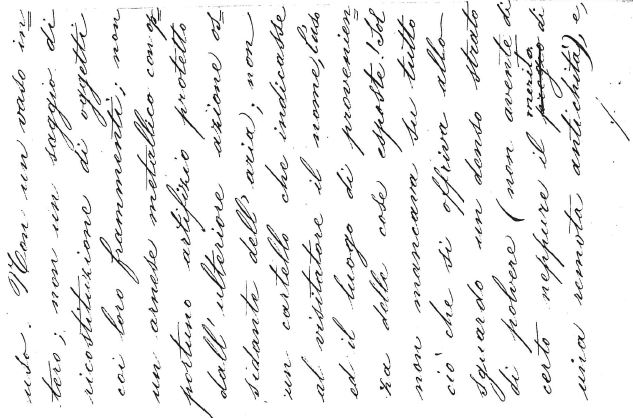 uso. Non un vaso in=
tero; non un saggio di
ricostituzione di oggetti
coi loro frammenti; non
un arnese metallico con op=
portuno artifizio protetto
dall'ulteriore azione os=
sidante dell'aria; non
un cartello che indicasse
al visitatore il nome, l'uso
ed il luogo di provenien=
za delle cose esposte! Sol
non mancava su tutto
ciò che si offriva allo
sguardo un denso strato
di polvere (non avente di
certo neppure il pregio merito di
una remota antichità), e,